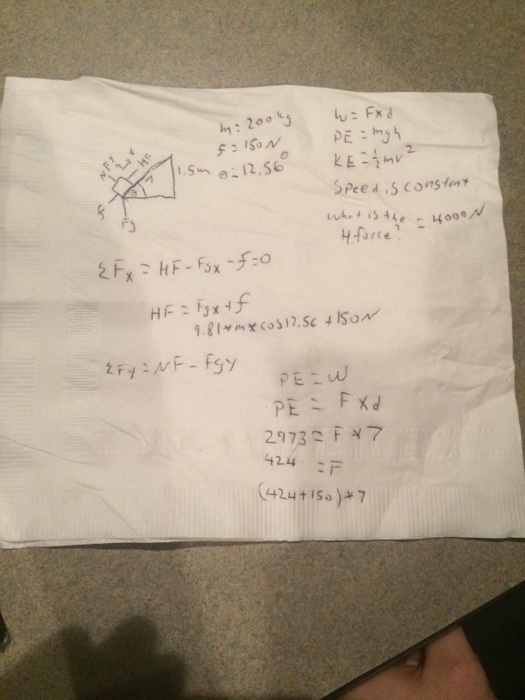 m = 200kg
f = 150N
θ = 12.56°
1.5m
NF
HF
7
θ
f
Fg
W = Fxd
PE = mgh
KE = ½mv²
Speed is constant
What is the H.force? = 4000N
ΣFx = HF - Fgx - f = 0
HF = Fgx + f
9.81 * m * cos12.56 + 150N
ΣFy = NF - Fgy
PE = W
PE = F x d
2973 = F * 7
424 = F
(424 + 150) * 7